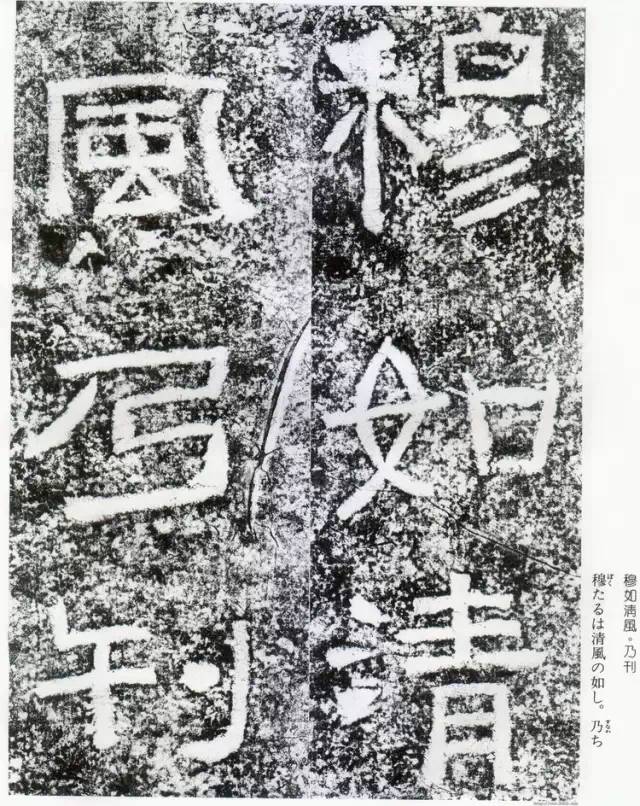 穆如清
風乃刊
穆如清風。乃刊
穆たるは清風の如し。乃ち
ぼく
すなわ